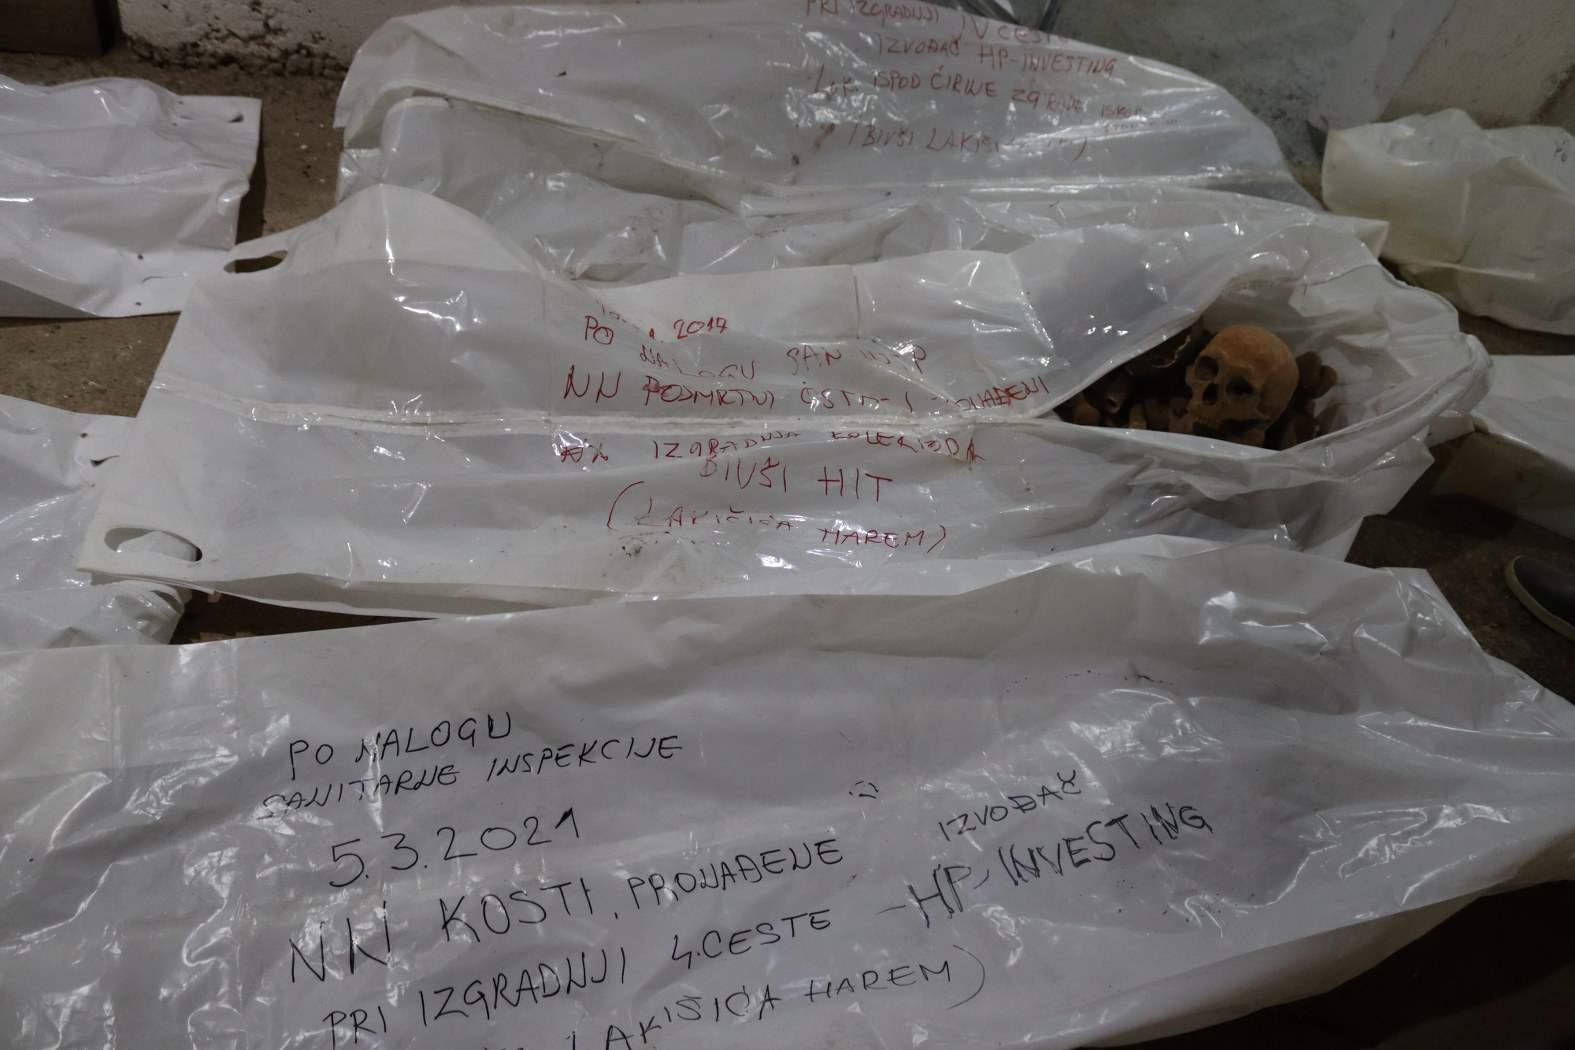 PRI IZGRADNJI IV CESTE
IZVOĐAČ HP-INVESTING
ISPOD ĆIRINE ZGRADE
(BIVŠI
PO 2017
NALOGU SAN INSP
NN POSMRTNI OSTACI PRONAĐENI
IZGRADNJA KOLEKTORA
BIVŠI HIT
(LAKIŠIĆA HAREM)
PO NALOGU
SANITARNE INSPEKCIJE
5.3.2021
NN KOSTI, PRONAĐENE IZVOĐAČ
PRI IZGRADNJI 4.CESTE - HP-INVESTING
LAKIŠIĆA HAREM)